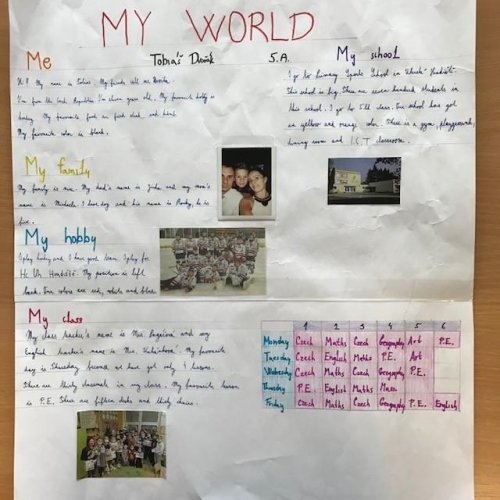 MY WORLD
Me
Tobiáš Dvořák 5.A.
Hi! My name is Tobiáš. My friends call me
I'm from the Czech Republic. I'm eleven years old. My favourite hobby is
hockey. My favourite food is fried duck and
My favourite color is black.
My school
I go to Primary Sports School in
This school is big. There are seven hundred students in
this school. I go to 5th class. Our school has got
an yellow and orange color. There is a gym, playground,
dining room and I.C.T classroom.
My family
My family is nice. My dad's name is Jirka and my mom's
name is Michaela. I have dog and his name is he is
five.
My hobby
I play hockey and I have good team. I play for
HC Uh. Hradiště. My position is left
back. Our colors are red, white and blue.
My class
My class teacher's name is Mrs. and my
English teacher's name is Mrs. My favourite
day is Thursday because we have got only 4 lessons.
There are thirty classmates in my class. My favourite lesson
is P.E. There are fifteen desks and thirty chairs.
1 2 3 4 5 6
Monday Czech Maths Czech Geography Art P.E.
Tuesday Czech English Maths P.E. Art
Wednesday Czech Maths Czech Geography P.E.
Thursday P.E. English Maths Music
Friday Czech Maths Czech Geography P.E. English